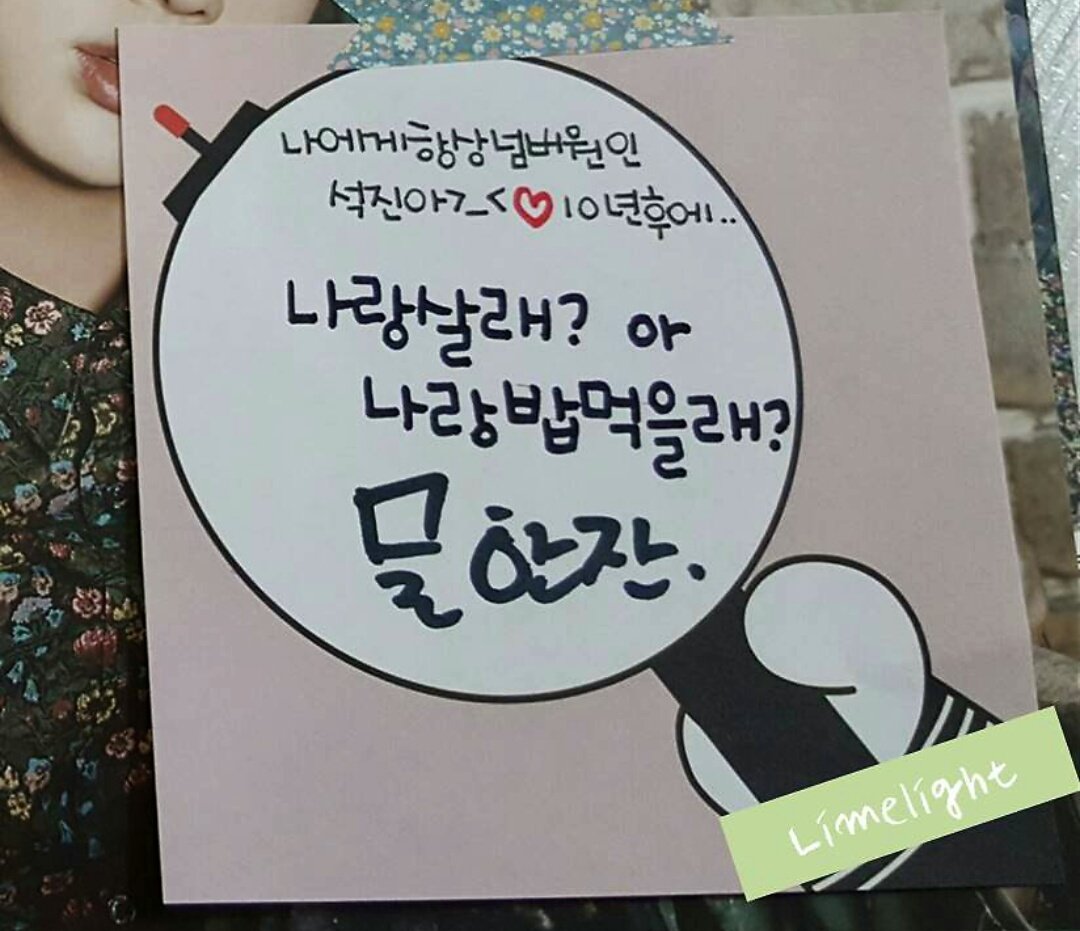 나에게항상넘버원인
석진아 >_< ♥ 10년후에..
나랑살래? 아
나랑밥먹을래?
물 한잔.
Limelight